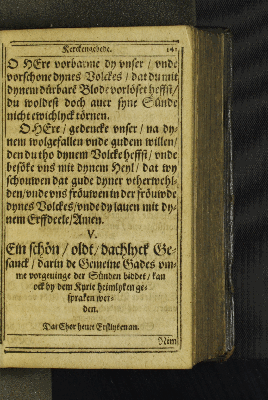 Kerckengebede. 141
O HEre vorbarme dy vnser / vnde
vorschone dynes Volckes / dat du mit
dynem dürbarē Blode vorlöset heffst/
du woldest doch auer syne Sünde
nicht ewichlyck törnen.
O HEre / gedencke vnser / na dy-
nem wolgefallen vnde gudem willen/
den du tho dynem Volcke heffst / vnde
besöke vns mit dynem Heyl / dat wy
schouwen dat gude dyner vtherwehl-
den/vnde vns fröuwen in der fröuwde
dynes Volckes/vnde dy lauen mit dy-
nem Erffdeele/Amen.
V.
Ein schön / oldt/ dachlyck Ge-
sanck / darin de Gemeine Gades vm-
me vorgeuinge der Sünden biddet / kan
ock by dem Kyrie heimlyken ge-
spraken wer-
den.
Dat Chor heuet Erstlyken an.
Nim